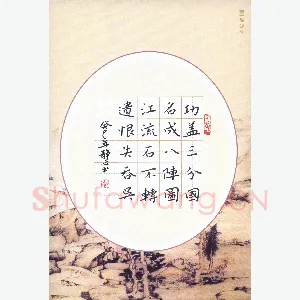 功盖三分国
名成八陣圖
江流石不轉
遺恨失吞吳
Shufawang.CN